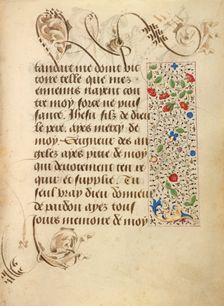 tandart me donne vic
toire telle que mes
ennemis nayent con
tre moy force ne puis
sance. Ihesu filz de dieu
le pere, ayes mercy de
moy. Seigneur des an
geles ayes pitie de moy
qui devotement ten re
quier et supplie. Tu
seul vray dieu donneur
de pardon ayez tous
jours memoire de moy